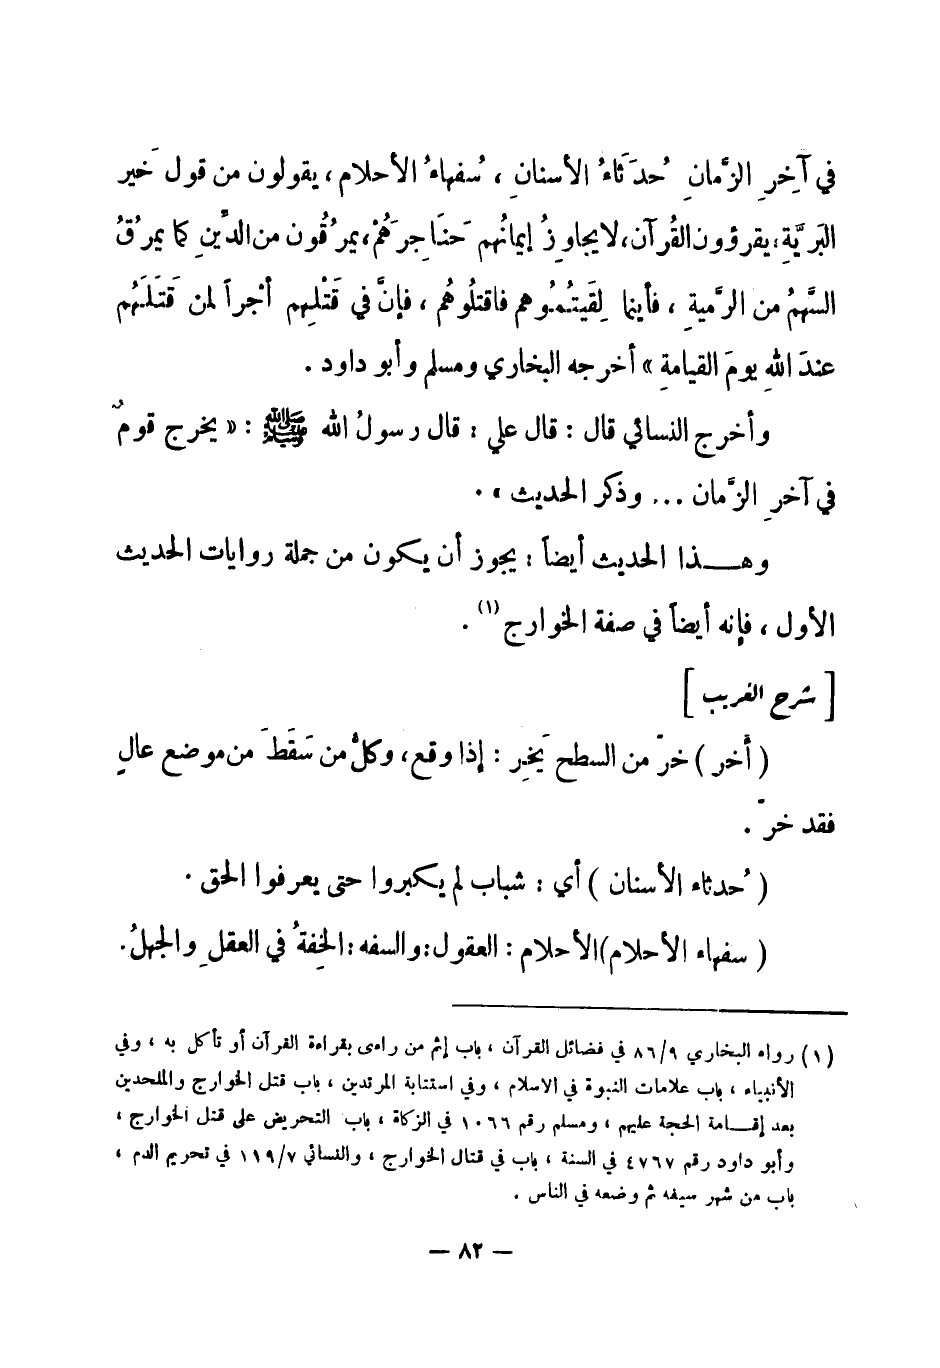 في آخِرِ الزَّمانِ حُدَثَاءُ الأسنانِ ، سُفهاءُ الأحلام ، يقولون من قول خَير
البَرِيَّةِ ، يقرؤون القُرآن ، لا يجاوِزُ إيمانُهم حَنَاجِرَهُمْ ، يمرُقُون من الدِّينِ كما يمرُقُ
السَّهمُ من الرَّمِيةِ ، فأينما لقِيتُمُوهم فاقتلُوهُم ، فإنَّ في قَتْلِهم أجراً لمن قَتَلَهُم
عندَ اللهِ يومَ القيامةِ » أخرجه البخاري ومسلم وأبو داود .
وأخرج النسائي قال : قال علي : قال رسولُ الله ﷺ : « يخرج قومٌ
في آخرِ الزَّمان ... وذكر الحديث » .
وهـــذا الحديث أيضاً : يجوز أن يكون من جملة روايات الحديث
الأول ، فإنه أيضاً في صفة الخوارج (١) .
[ شرح الغريب ]
( أخر ) خرّ من السطح يَخِر : إذا وقع ، وكلُّ من سَقَطَ من موضع عالٍ
فقد خرّ .
( حُدثاء الأسنان ) أي : شباب لم يكبروا حتى يعرفوا الحق .
( سفهاء الأحلام ) الأحلام : العقول : والسفه : الخِفةُ في العقلِ والجهلُ .
(١) رواه البخاري ٨٦/٩ في فضائل القرآن ، باب إثم من راءى بقراءة القرآن أو تأكل به ، وفي
الأنبياء ، باب علامات النبوة في الاسلام ، وفي استتابة المرتدين ، باب قتل الخوارج والملحدين
بعد إقـــامة الحجة عليهم ، ومسلم رقم ١٠٦٦ في الزكاة ، باب التحريض على قتل الخوارج ،
وأبو داود رقم ٤٧٦٧ في السنة ، باب في قتال الخوارج ، والنسائي ١١٩/٧ في تحريم الدم ،
باب من شهر سيفه ثم وضعه في الناس .
— ٨٢ —